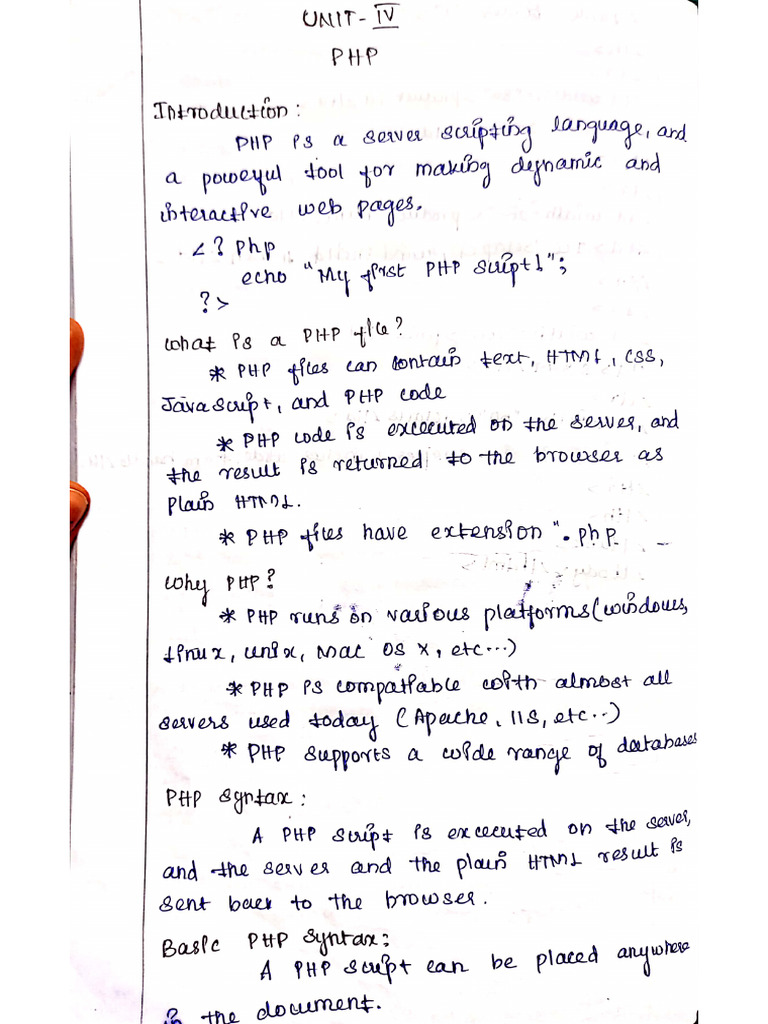 UNIT-IV
PHP
Introduction:
PHP is a server scripting language, and
a powerful tool for making dynamic and
interactive web pages.
<?php
echo "My first PHP script!";
?>
What is a PHP file?
* PHP files can contain text, HTML, CSS,
JavaScript, and PHP code
* PHP code is excecuted on the server, and
the result is returned to the browser as
plain HTML.
* PHP files have extension ".php
Why PHP?
* PHP runs on various platforms (windows,
linux, unix, Mac OS X, etc...)
* PHP is compatiable with almost all
servers used today (Apache, IIS, etc..)
* PHP supports a wide range of databases
PHP Syntax:
A PHP script is excecuted on the server,
and the server and the plain HTML result is
sent back to the browser.
Basic PHP Syntax:
A PHP script can be placed anywhere
in the document.